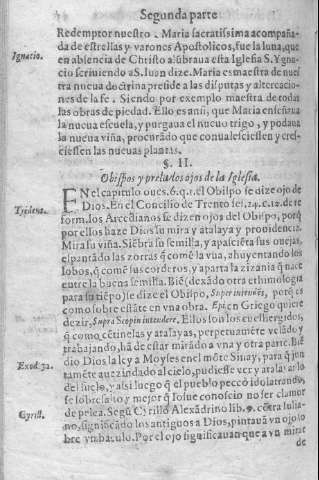 Segunda parte
Redemptor nuestro. Maria sacratissima acompaña-
da de estrellas y varones Apostolicos, fue la luna, que
en absencia de Christo alũbraua esta Iglesia S. Ygna-
Ignacio.
cio scriuiendo a S. Iuan dize. Maria es maestra de nues
tra nueua doctrina preside a las disputas y altercacio-
nes de la fe. Siendo por exemplo maestra de todas
las obras de piedad. Ello es ansi, que Maria enseñaua
la nueua escuela, y purgaua el nueuo trigo, y podaua
la nueua viña, procurãdo que conualesciessen y cres-
ciessen las nueuas plantas.
§. II.
Obispos y prelados ojos de la Iglesia.
EN el capitulo oues. 6. q. 1. el Obispo se dize ojo de
Tridens.
Dios. En el Concilio de Trento ses. 24. c. 12. de re
form. los Arcedianos se dizen ojos del Obispo, porq̃
por ellos haze Dios su mira y atalaya y prouidencia.
Mira su viña. Siẽbra su semilla, y apascieta sus ouejas,
espantãdo las zorras q̃ comẽ la vua, ahuyentando los
lobos, q̃ comẽ sus corderos, y aparta la zizania q̃ nace
entre la buena semilla. Biẽ (dexãdo otra ethimologia
para su tiẽpo) se dize el Obispo, Superintendẽs, porq̃ es
como sobre estãte en vna obra. Epi en Griego quiere
dezir, Supra Scopin intendere. Ellos son los
q̃ como cẽtinelas y atalayas, perpetuamẽte velãdo y
trabajando, hã de estar mirãdo a vna y otra parte. Biẽ
Exod. 32.
dio Dios la ley a Moyses en el mõte Sinay, para q̃ jun
tamẽte auezindado al cielo, pudiesse ver y atalayar lo
del suelo, y alsi luego q̃ el pueblo peccò idolatrando,
se sobresalto y mejor q̃ Iosue conoscio no ser clamor
Cyrill.
de pelea. Segũ Cyrillo Alexãdrino lib. 9. cõtra Iulia-
no, significãdo los antiguos a Dios, pintauã vn ojo so
bre vn baculo. Por el ojo significauan que a vn mirar
de